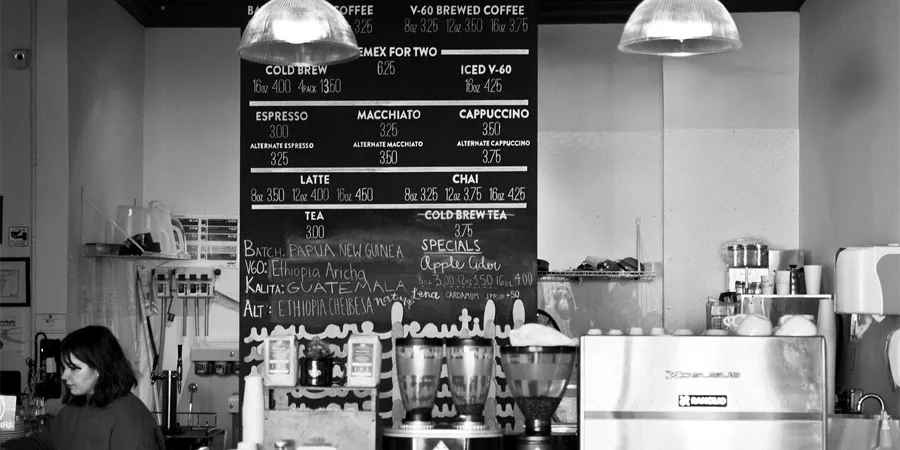 BA COFFEE V-60 BREWED COFFEE
3.25 8oz 3.25 12oz 3.50 16oz 3.75
EMEX FOR TWO
6.25
COLD BREW ICED V-60
16oz 4.00 4PACK 13.50 16oz 4.25
ESPRESSO MACCHIATO CAPPUCCINO
3.00 3.25 3.50
ALTERNATE ESPRESSO ALTERNATE MACCHIATO ALTERNATE CAPPUCCINO
3.25 3.50 3.75
LATTE CHAI
8oz 3.50 12oz 4.00 16oz 4.50 8oz 3.25 12oz 3.75 16oz 4.25
TEA COLD BREW TEA
3.00 3.75
BATCH: PAPUA NEW GUINEA
V60: Ethiopia Aricha
KALITA: GUATEMALA
ALT: ETHIOPIA CHELBESA natural
SPECIALS
Apple Cider
8oz 3.00 12oz 3.50 16oz 4.00
CARDAMOM SYRUP +50
RANCILIO